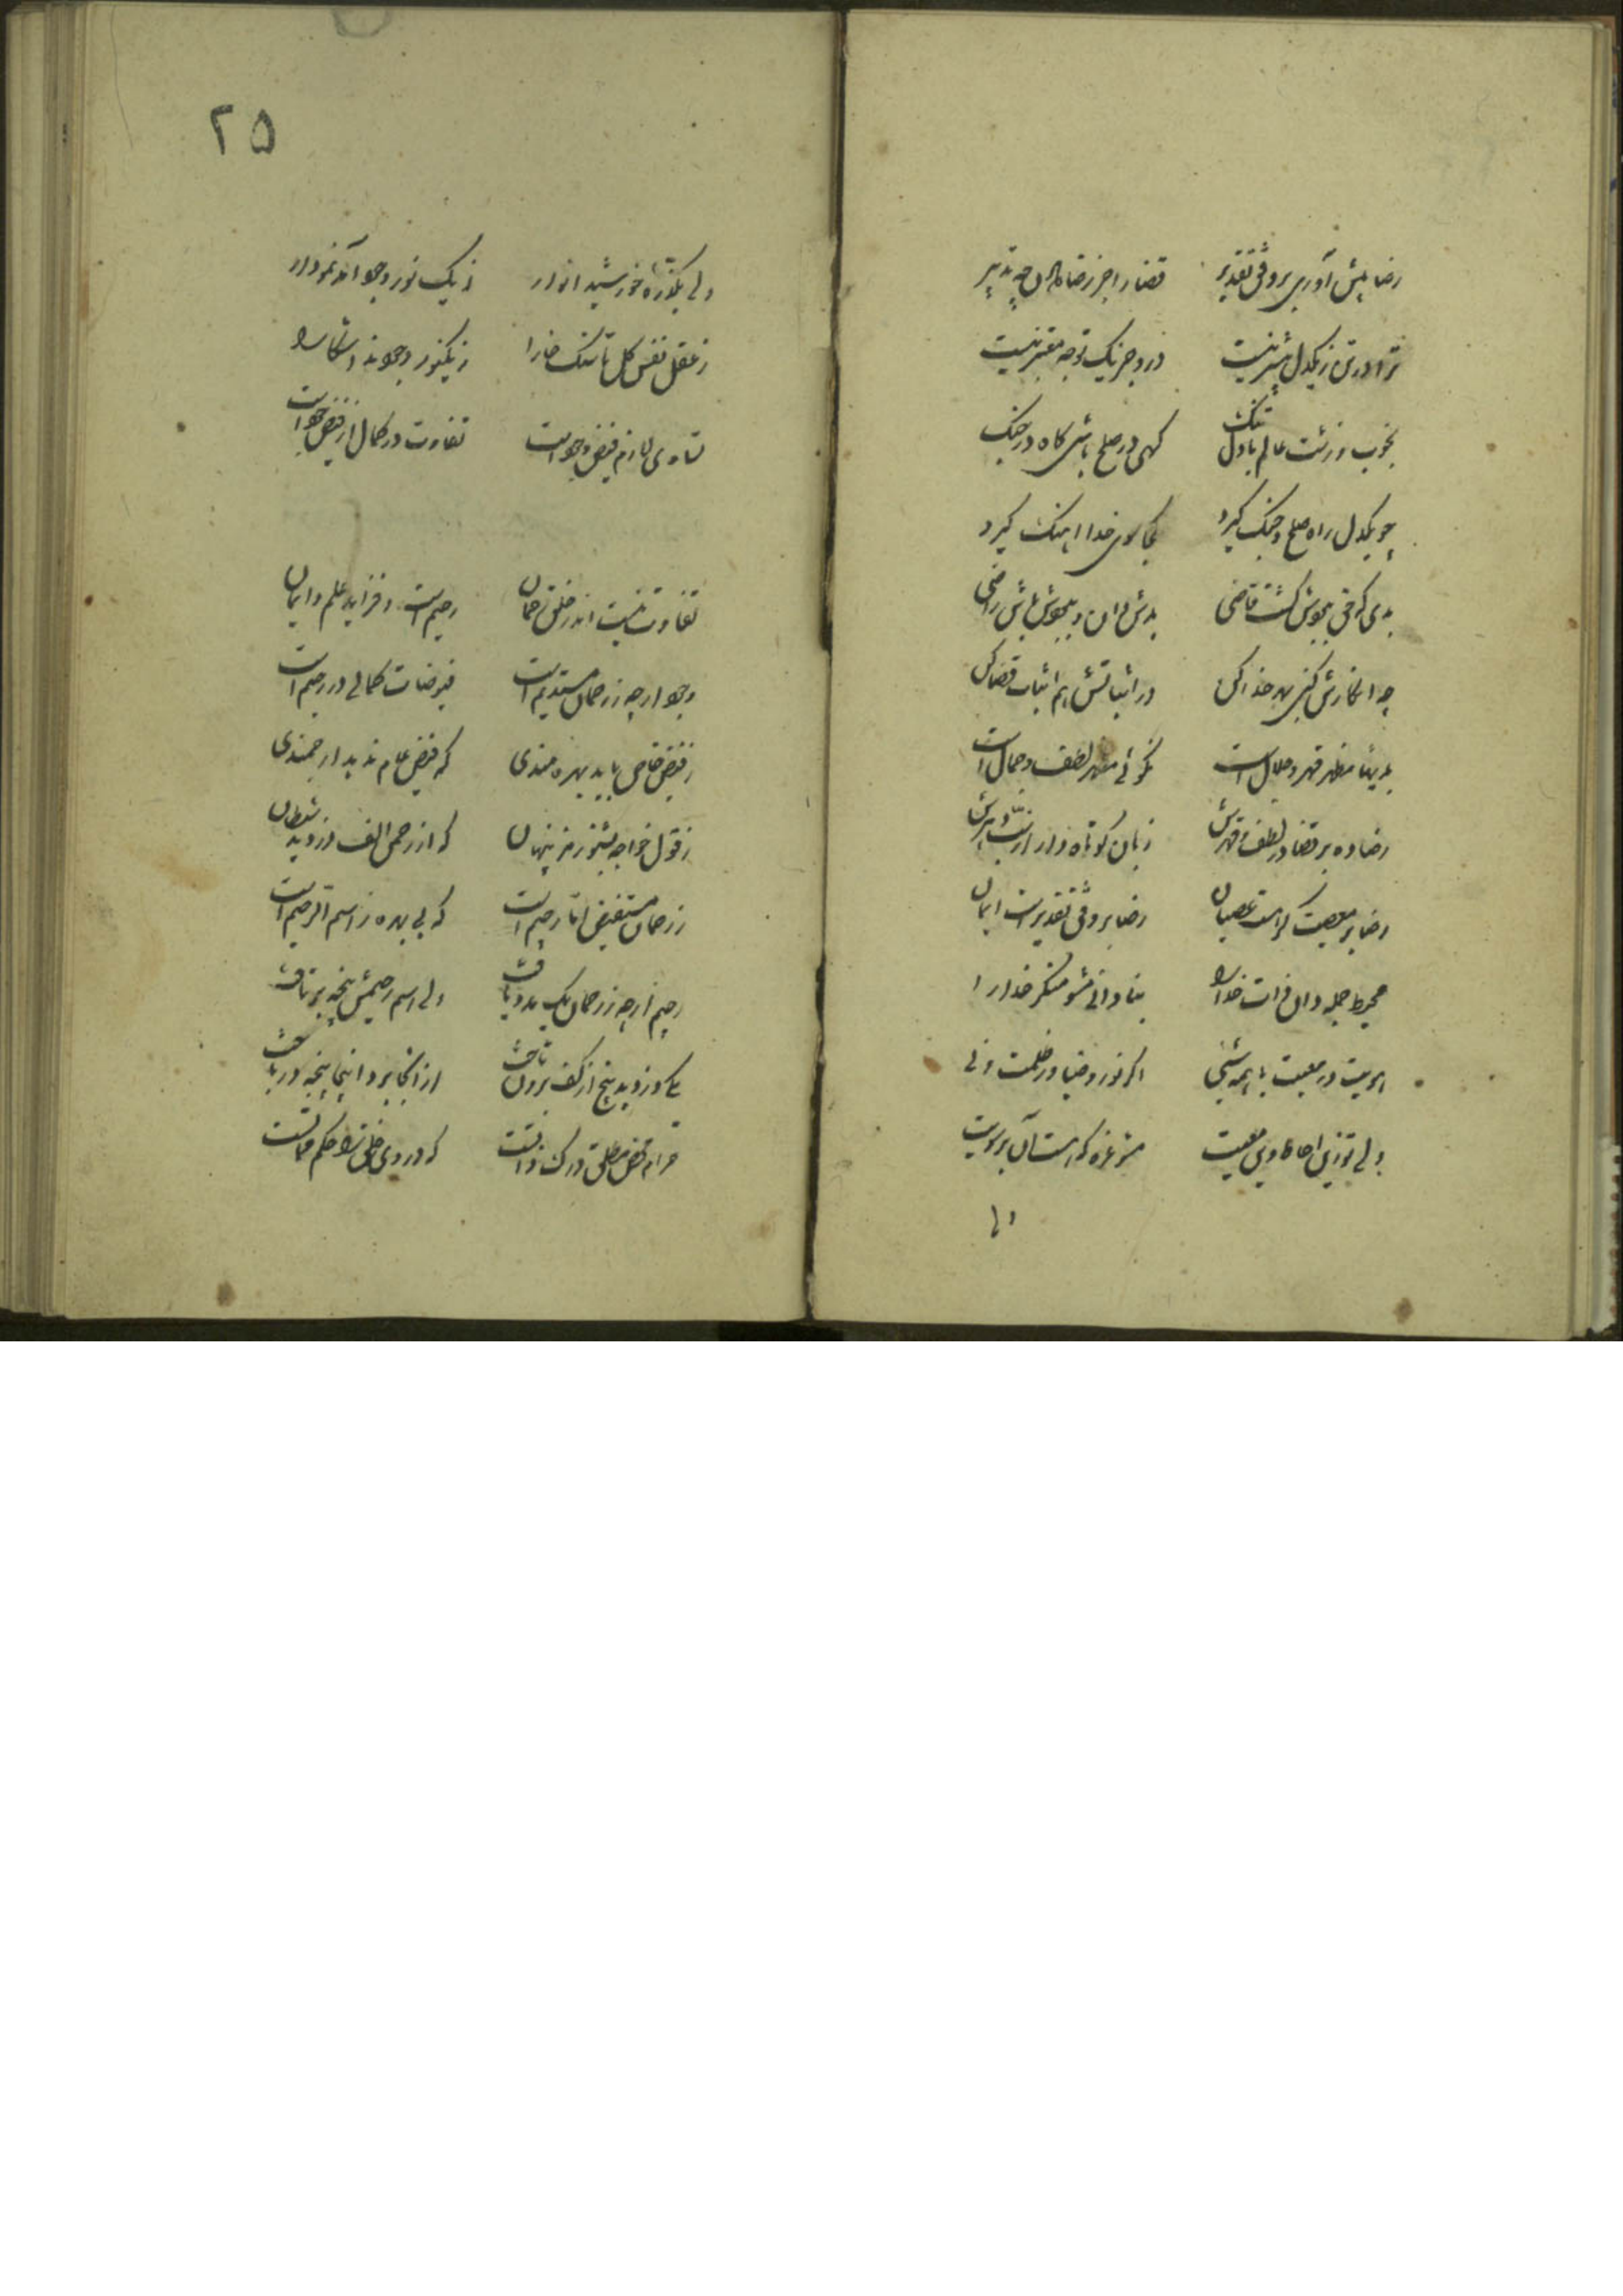 رضا پیش آوری بر وفق تقدیر قضا را جز رضا دادن چه تدبیر
ترا در تن ز یکدل بیشتر نیست درو جز یک توجه معتبر نیست
بخوب و زشت عالم با دل تنگ گهی در صلح باشی گاه در جنگ
چو یکدل راه صلح و جنگ گیرد کجا سوی خدا آهنگ گیرد
بدی کو حق بجوش گشت قاضی بدش دان و بجوش باش راضی
چه انکارش کنی بهر خدا کن در اثباتش هم اثبات قضا کن
بدیها مظهر قهر و جلال است نکوئی مظهر لطف و جمال است
رضا ده بر قضا در لطف و قهرش زبان کوتاه دار از
رضا بر معصیت کفر است عصیان رضا بر وفق تقدیر است ایمان
محیط جمله دان ذات خدا را بنادانی مشو منکر خدا را
هویت در معیت با همه شیئی اگر نور و ضیا ور ظلمت و فی
ولی تو زین احاطه وین معیت مشو غره که هست آن بر سویت
ولی
۲۵
ولی بر ذره تا خورشید انوار ز یک نور وجود آمد نمودار
ز عقل و نفس کل تا سنگ خارا ز یک نور وجودند آشکارا
تساوی لازم فیض وجود است تفاوت در کمال از فیض جود است
تفاوت نیست اندر خلق رحمان رحیم است و فزاید علم و ایمان
وجود ارچه ز رحمان مستدیم است فیوضات کمالی در رحیم است
ز فیض خاص باید بهره مندی که فیض عام ندهد ارجمندی
ز قول خواجه بشنو رمز پنهان که از رحمن الف دزدید شیطان
ز رحمان مستفیض اما رجیم است که بی بهره ز اسم الرحیم است
رجیم ارچه ز رحمان یک مدد یافت ولی اسم رحیمش پنجه برتافت
یکی دزدید پنج از کف برون تاخت از آنجا برد و اینجا پنجه در باخت
که در وی خلق را حکم مماتست